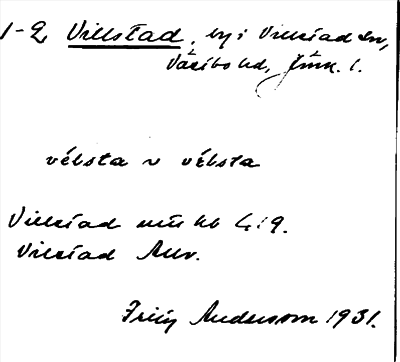 1-2 Villstad, by i Villstad sn,
Västbo hd, Jönk. l.
vélsta v vélsta
Villstad
Villstad
Fritz Andersson 1931.